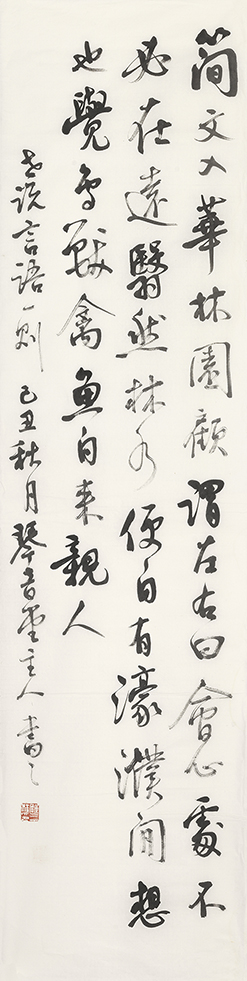 簡文入華林園顧謂左右曰會心處不
必在遠翳然林水便自有濠濮間想
也覺鳥獸禽魚自來親人
世說言語一則 己丑秋月琴音堂主人書之